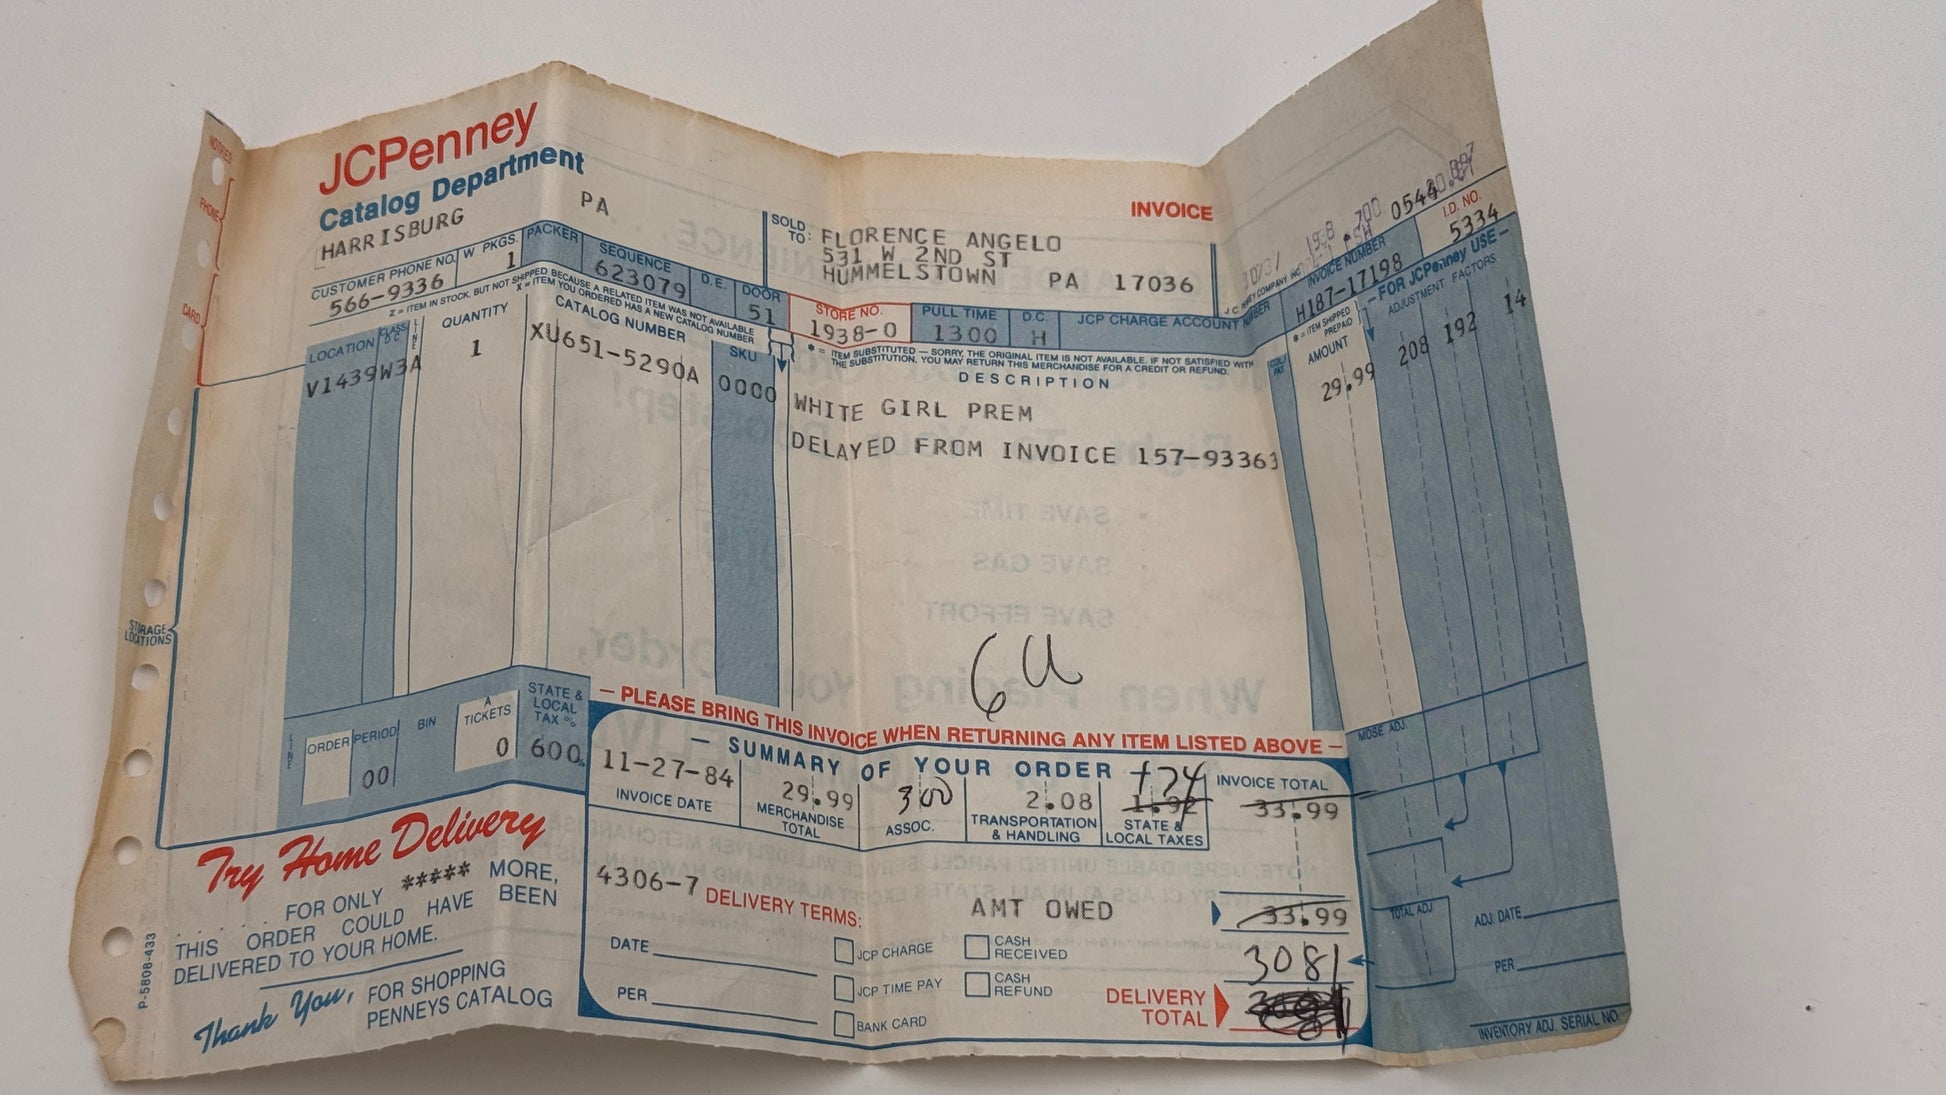 NOTIFIED
PHONE
CARD
STORAGE LOCATIONS
P-5808-433
JCPenney
Catalog Department
HARRISBURG PA
INVOICE
SOLD TO: FLORENCE ANGELO
531 W 2ND ST
HUMMELSTOWN PA 17036
0544
I.D. NO.
5334
CUSTOMER PHONE NO.
566-9336
W PKGS.
1
PACKER
SEQUENCE
623079
D.E.
DOOR
51
STORE NO.
1938-0
PULL TIME
1300
D.C.
H
JCP CHARGE ACCOUNT NUMBER
INVOICE NUMBER
H187-17198
— FOR JCPenney USE —
Z = ITEM IN STOCK, BUT NOT SHIPPED BECAUSE A RELATED ITEM WAS NOT AVAILABLE
X = ITEM YOU ORDERED HAS A NEW CATALOG NUMBER
* = ITEM SUBSTITUTED — SORRY, THE ORIGINAL ITEM IS NOT AVAILABLE. IF NOT SATISFIED WITH
THE SUBSTITUTION, YOU MAY RETURN THIS MERCHANDISE FOR A CREDIT OR REFUND.
* = ITEM SHIPPED PREPAID
LOCATION
CLASS
LINE
QUANTITY
CATALOG NUMBER
SKU
DESCRIPTION
AMOUNT
ADJUSTMENT FACTORS
V1439W3A 1 XU651-5290A 0000 WHITE GIRL PREM 29.99 208 192 14
DELAYED FROM INVOICE 157-93363
6U
— PLEASE BRING THIS INVOICE WHEN RETURNING ANY ITEM LISTED ABOVE —
MDSE ADJ.
LINE
ORDER
PERIOD
00
BIN
A TICKETS
0
STATE & LOCAL TAX %
600%
— SUMMARY OF YOUR ORDER
11-27-84
INVOICE DATE
29.99
MERCHANDISE TOTAL
3 00
ASSOC.
2.08
TRANSPORTATION & HANDLING
174
1.92
STATE & LOCAL TAXES
INVOICE TOTAL
33.99
4306-7 DELIVERY TERMS:
AMT OWED
33.99
3081
TOTAL ADJ.
ADJ. DATE
PER
DATE
PER
JCP CHARGE
JCP TIME PAY
BANK CARD
CASH RECEIVED
CASH REFUND
DELIVERY TOTAL
INVENTORY ADJ. SERIAL NO.
Try Home Delivery
. . . . . FOR ONLY ***** MORE,
THIS ORDER COULD HAVE BEEN
DELIVERED TO YOUR HOME.
Thank You, FOR SHOPPING
PENNEYS CATALOG